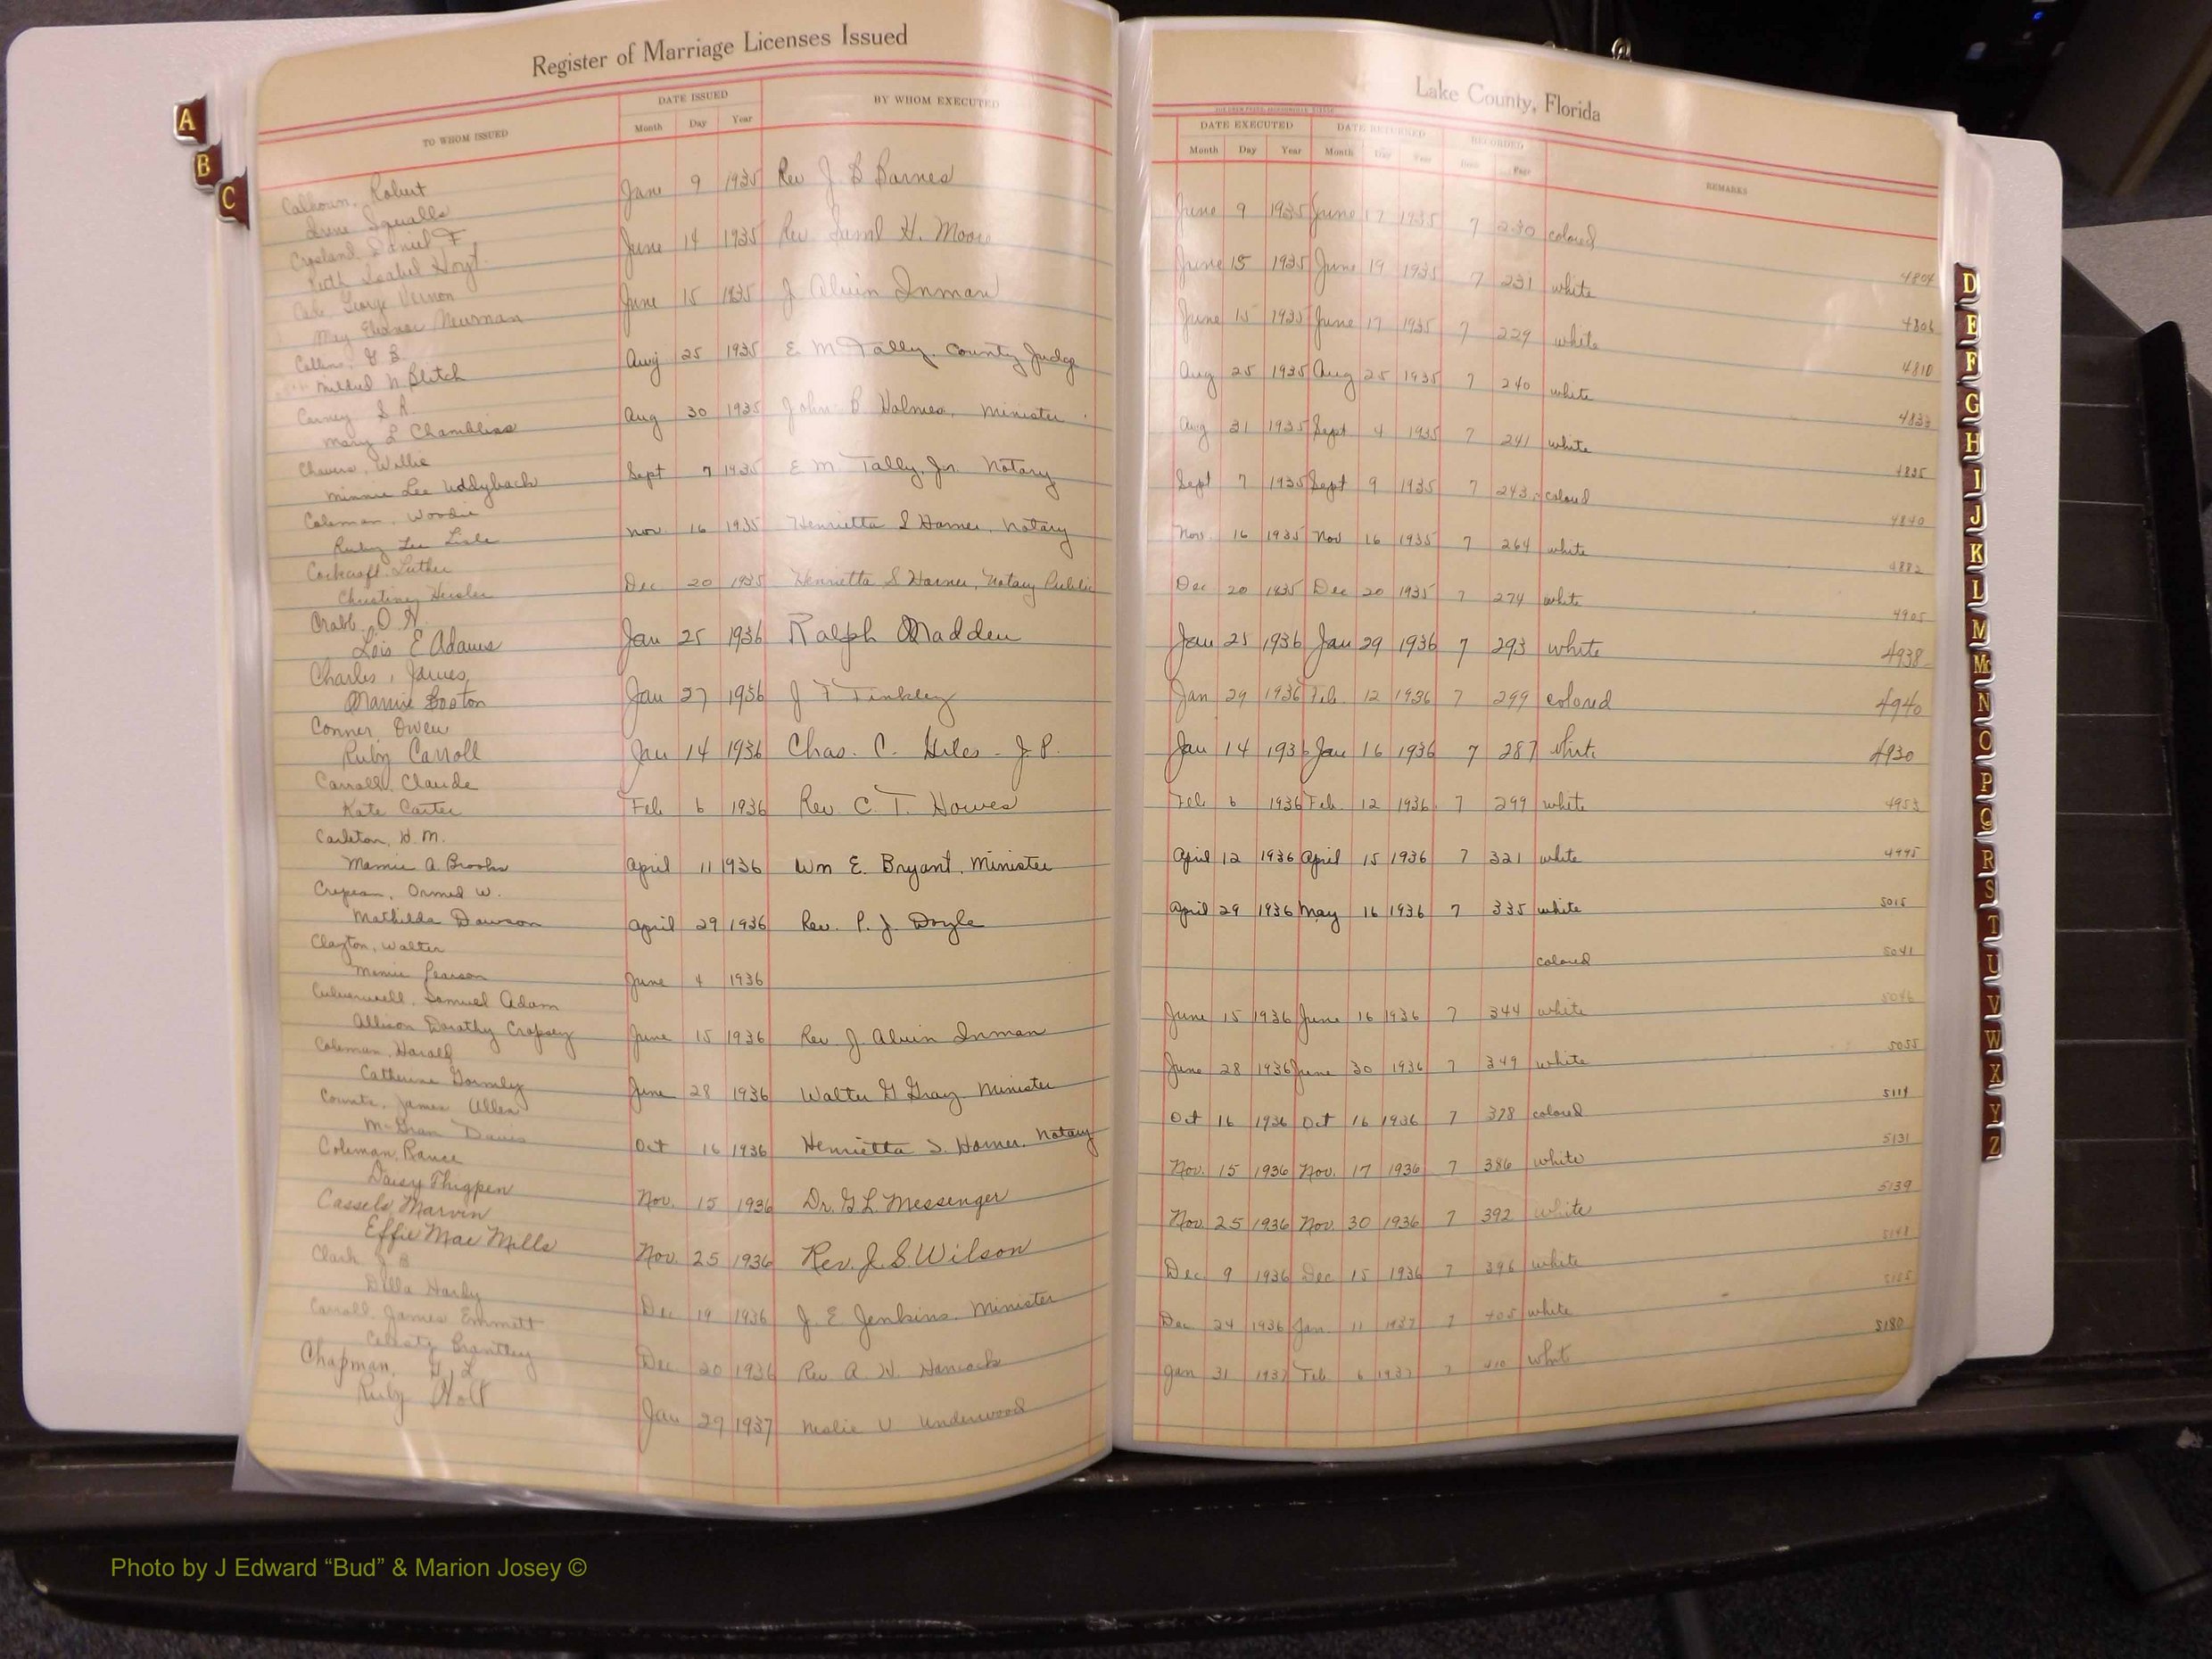 Register of Marriage Licenses Issued
TO WHOM ISSUED
DATE ISSUED
Month Day Year
BY WHOM EXECUTED
Calhoun, Robert
Irene Squalls June 9 1935 Rev J. B Barnes
Croxland, Daniel F.
Ruth Isabel Hoyt June 14 1935 Rev. Saml H. Moore
Cale, George Vernon
May Eleanor Newman June 15 1935 J Alvin Inman
Collins, G B
Mildred N. Blitch Aug 25 1935 E M Tally. County Judge
Carney S A
Mary L Chambliss Aug 30 1935 John B Holmes, Minister
Chavers, Willie
Minnie Lee Uddyback Sept 7 1935 E M. Tally, Jr. Notary
Coleman, Woodie
Ruby Lee Lisle Nov 16 1935 Henrietta S Horner, Notary
Cockcroft Luther
Christiney Heisler Dec 20 1935 Henrietta S Horner, Notary Public
Crabb, O. H.
Lois E Adams Jan 25 1936 Ralph Madden
Charles, James,
Mamie Boston Jan 27 1936 J F Tinkley
Conner, Owen
Ruby Carroll Jan 14 1936 Chas. C. Hiles - J. P.
Carroll, Claude
Kate Carter Feb 6 1936 Rev. C. T. Howes
Carleton, H. M.
Mamie A. Brooks April 11 1936 Wm E. Bryant, Minister
Crepeau, Ormed W.
Mathilda Dawson April 29 1936 Rev. P. J. Doyle
Clayton, Walter
Mamie Pearson June 4 1936
Culverwell, Samuel Adam
Allison Dorothy Cropsey June 15 1936 Rev J. Alvin Inman
Coleman, Harold
Catherine Gormly June 28 1936 Walter G Gray Minister
Counts, James Allen
Davis Oct 16 1936 Henrietta S. Horner, Notary
Coleman, Rance
Daisy Thigpen Nov. 15 1936 Dr. G L. Messenger
Cassels, Marvin
Effie Mae Mills Nov. 25 1936 Rev. J. S Wilson
Clark J B
Della Hardy Dec 19 1936 J. E. Jenkins. Minister
Carroll, James Emmett
Celesty Brantley Dec. 20 1936 Rev A. W. Hancock
Chapman, G L
Ruby Holt Jan 29 1937 Leslie V Underwood
Lake County, Florida
DATE EXECUTED DATE RETURNED RECORDED
Month Day Year Month Day Year Book Page REMARKS
June 9 1935 June 17 1935 7 230 colored 4804
June 15 1935 June 19 1935 7 231 white 4806
June 15 1935 June 17 1935 7 229 white 4810
Aug 25 1935 Aug 25 1935 7 240 white 4833
Aug 31 1935 Sept 4 1935 7 241 white 4835
Sept 7 1935 Sept 9 1935 7 243 colored 4840
Nov. 16 1935 Nov 16 1935 7 264 white 4882
Dec 20 1935 Dec 20 1935 7 274 white 4905
Jan 25 1936 Jan 29 1936 7 293 white 4938
Jan 29 1936 Feb. 12 1936 7 299 colored 4940
Jan 14 1936 Jan 16 1936 7 287 white 4930
Feb 6 1936 Feb. 12 1936 7 299 white 4953
April 12 1936 April 15 1936 7 321 white 4995
April 29 1936 May 16 1936 7 335 white 5015
colored 5041
June 15 1936 June 16 1936 7 344 white 5046
June 28 1936 June 30 1936 7 349 white 5055
Oct 16 1936 Oct 16 1936 7 378 colored 5119
Nov. 15 1936 Nov. 17 1936 7 386 white 5131
Nov. 25 1936 Nov. 30 1936 7 392 white 5139
Dec 9 1936 Dec 15 1936 7 396 white
Dec 24 1936 Jan 11 1937 7 405 white 5155
Jan 31 1937 Feb 6 1937 7 410 white 5180
A
B
C
D
E
F
G
H
I
J
K
L
M
Mc
N
O
P
Q
R
S
T
U
V
W
X
Y
Z
Photo by J Edward “Bud” & Marion Josey ©